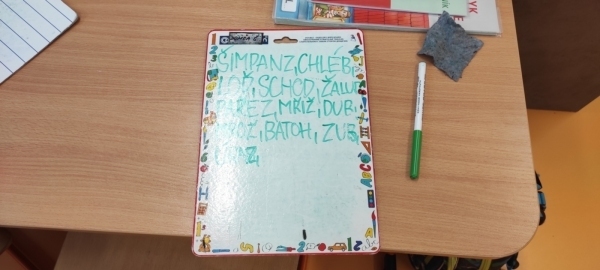 ŠIMPANZ, CHLÉB,
LOĎ, SCHOD, ŽALUD
PAŘEZ, MŘÍŽ, DUB,
MROŽ, BATOH, ZUB,